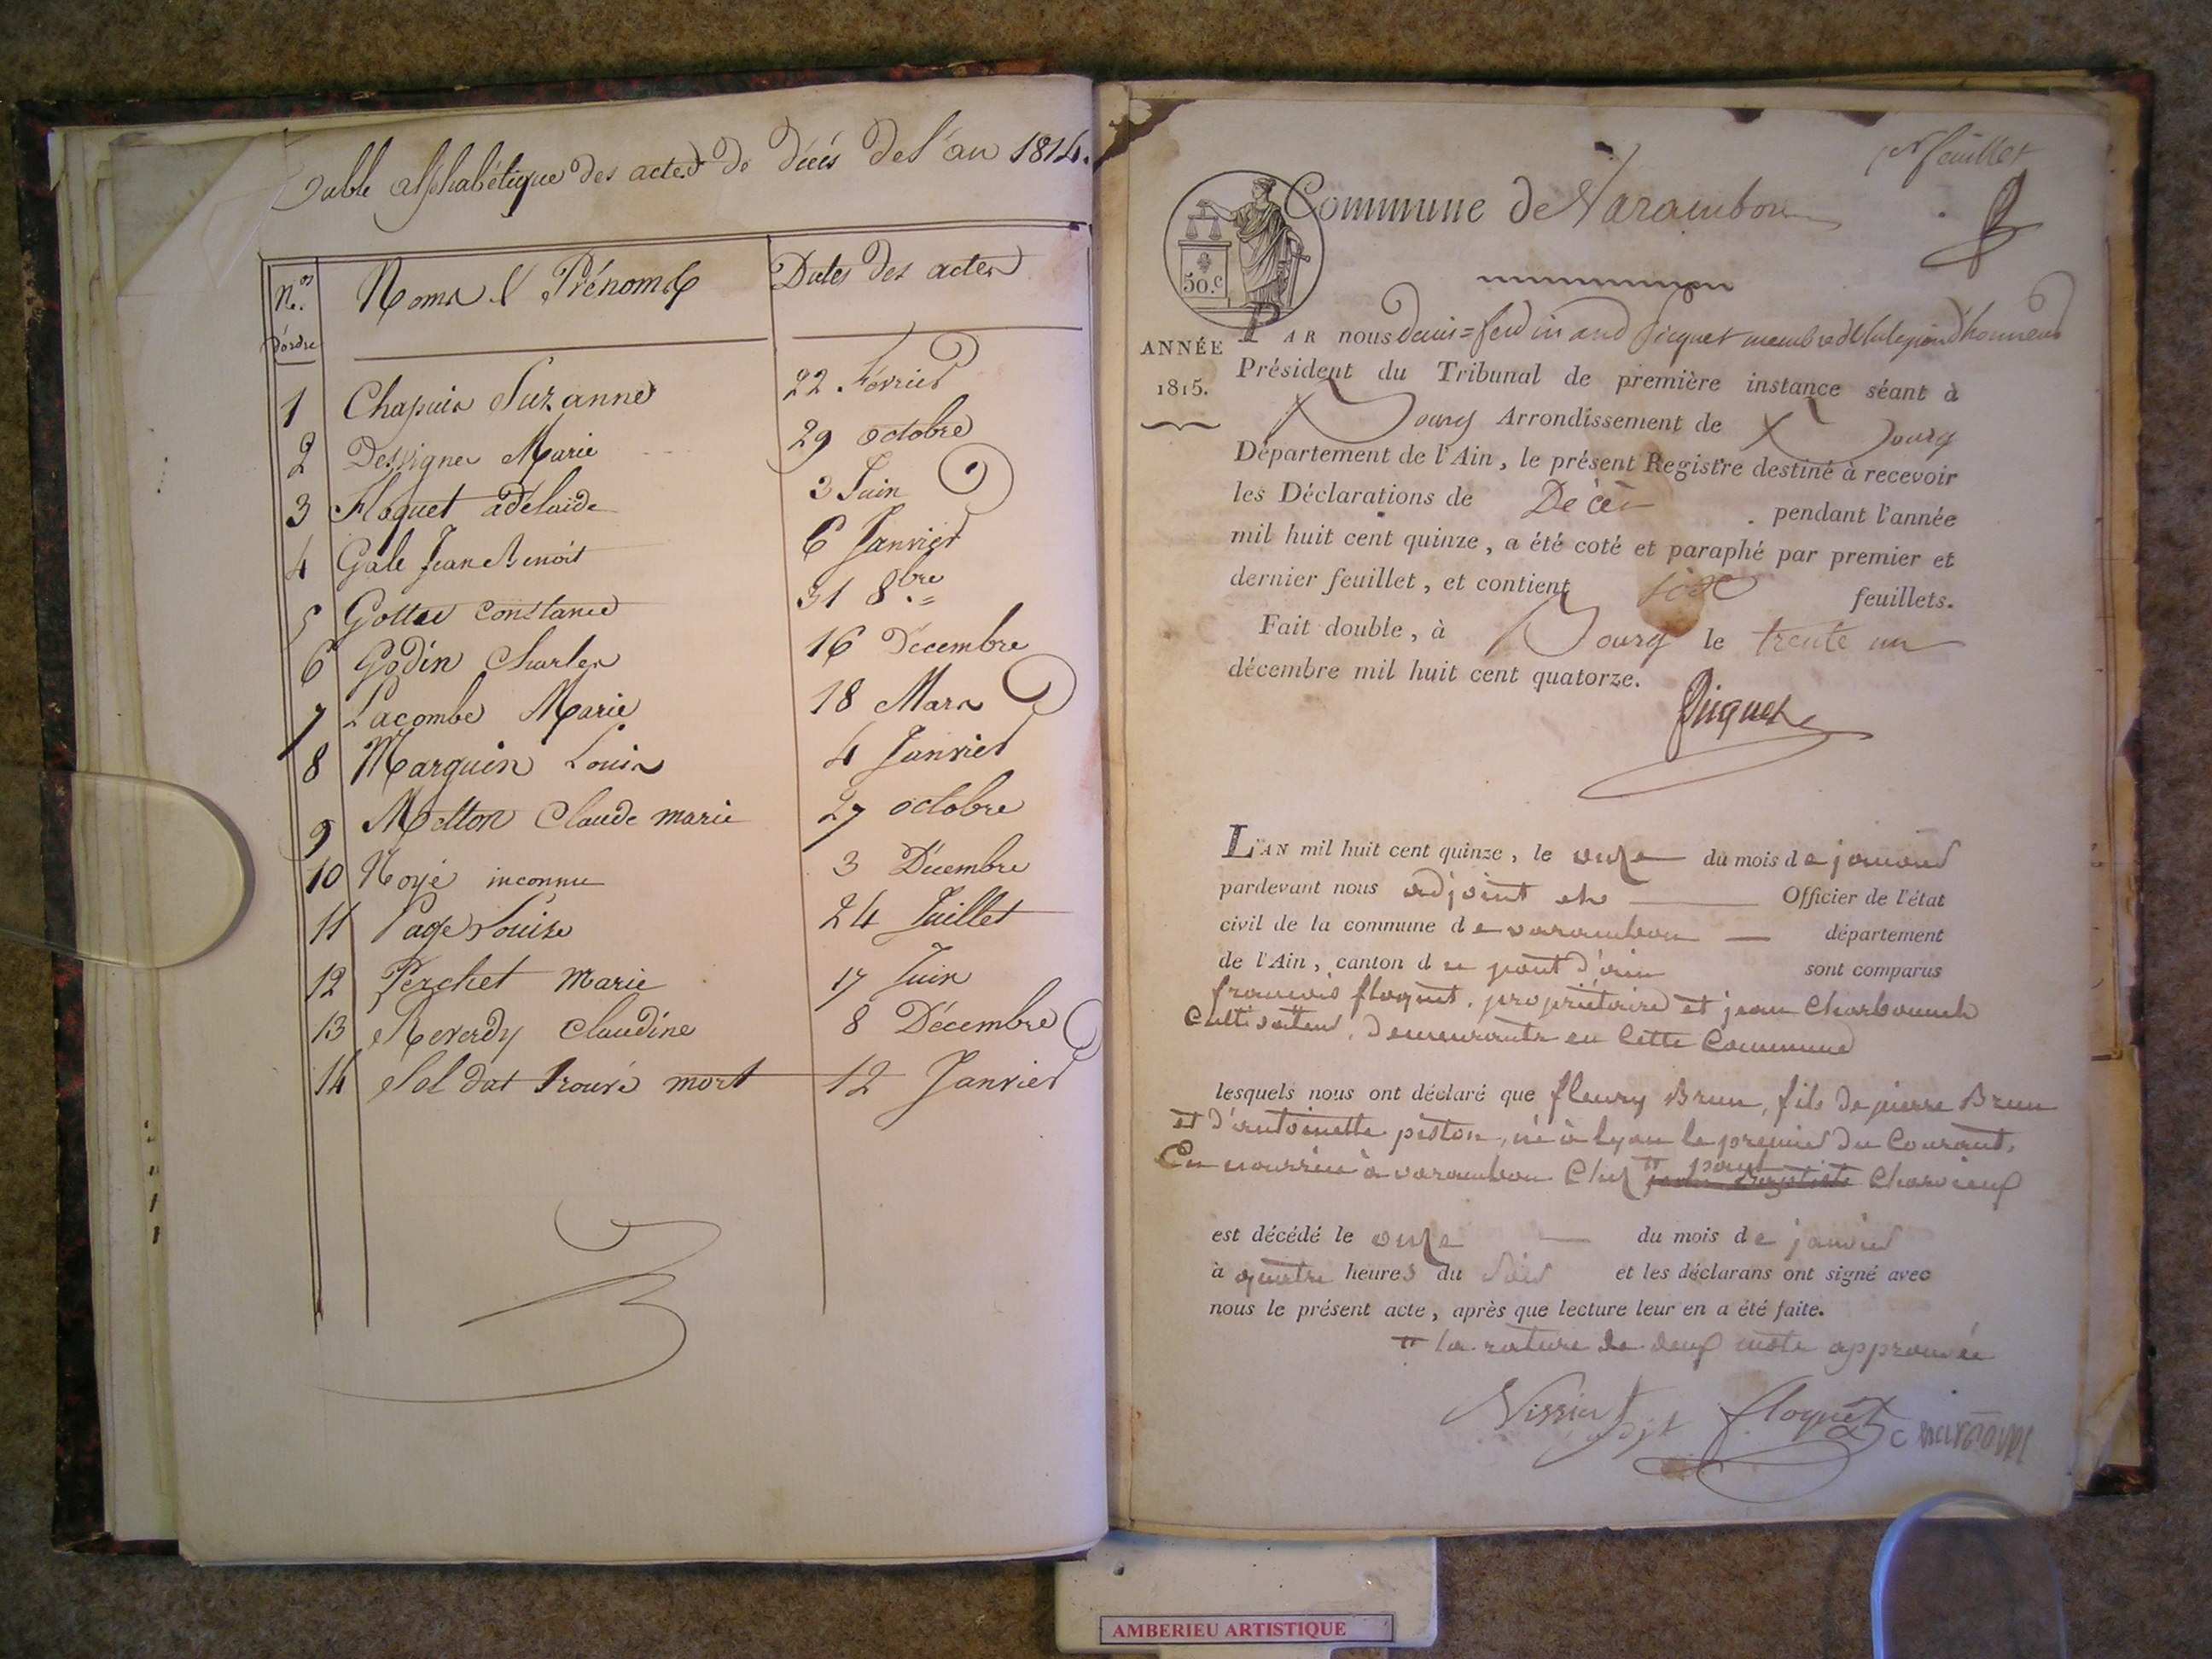 Table alphabétique des actes de décès de l'an 1814.
N.os d'ordre
Noms & Prénoms
Dates des actes
1 Chapuis Suzanne 22 Février
2 Desvignes Marie 29 octobre
3 Floquet adélaide 3 Juin
4 Gale Jean Benoit 6 Janvier
5 Gottee constance 31 8.bre
6 Godin Charles 16 Décembre
7 Lacombe Marie 18 Mars
8 Marguin Louis 4 Janvier
9 Motton Claude marie 27 octobre
10 Noyé inconnu 3 Décembre
11 Page Louise 24 Juillet
12 Perchet Marie 17 Juin
13 Reverdy Claudine 8 Décembre
14 Soldat trouvé mort 12 Janvier
1er feuillet
Commune de Varambon
50.c
ANNÉE
1815.
PAR nous denis=ferdinand Picquet membre de la legion d'honneur
Président du Tribunal de première instance séant à
Bourg Arrondissement de Bourg
Département de l'Ain, le présent Registre destiné à recevoir
les Déclarations de Décès pendant l'année
mil huit cent quinze, a été coté et paraphé par premier et
dernier feuillet, et contient feuillets.
Fait double, à Bourg le trente un
décembre mil huit cent quatorze.
Picquet
L'AN mil huit cent quinze, le onze du mois de janvier
pardevant nous adjoint Officier de l'état
civil de la commune de varambon département
de l'Ain, canton de pont d'ain sont comparus
francois floquet, propriétaire et jean Charbonnel
Cultivateur, demeurants en Cette Commune
lesquels nous ont déclaré que fleury Brun, fils de pierre Brun
et d'antoinette piston, né à lyon le premier du Courant,
En nourrice à varambon Chez paul jean Baptiste Charvieux
est décédé le onze du mois de janvier
à quatre heures du soir et les déclarans ont signé avec
nous le présent acte, après que lecture leur en a été faite.
la rature de deux mots approuvée
floquet
AMBERIEU ARTISTIQUE